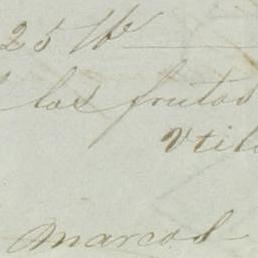 25 lb
los frutos
Util
Marcos